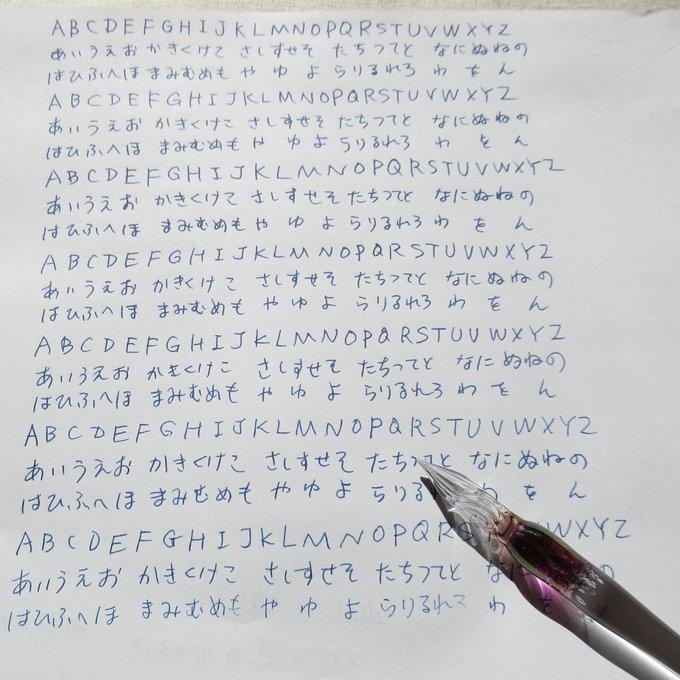 ABCDEFGHIJKLMNOPQRSTUVWXYZ
あいうえお かきくけこ さしすせそ たちつてと なにぬねの
はひふへほ まみむめも や ゆ よ らりるれろ わ を ん
ABCDEFGHIJKLMNOPQRSTUVWXYZ
あいうえお かきくけこ さしすせそ たちつてと なにぬねの
はひふへほ まみむめも や ゆ よ らりるれろ わ を ん
ABCDEFGHIJKLMNOPQRSTUVWXYZ
あいうえお かきくけこ さしすせそ たちつてと なにぬねの
はひふへほ まみむめも や ゆ よ らりるれろ わ を ん
ABCDEFGHIJKLMNOPQRSTUVWXYZ
あいうえお かきくけこ さしすせそ たちつてと なにぬねの
はひふへほ まみむめも や ゆ よ らりるれろ わ を ん
ABCDEFGHIJKLMNOPQRSTUVWXYZ
あいうえお かきくけこ さしすせそ たちつてと なにぬねの
はひふへほ まみむめも や ゆ よ らりるれろ わ を ん
ABCDEFGHIJKLMNOPQRSTUVWXYZ
あいうえお かきくけこ さしすせそ たちつてと なにぬねの
はひふへほ まみむめも や ゆ よ らりる わ を ん
ABCDEFGHIJKLMNOPQRS WXYZ
あいうえお かきくけこ さしすせそ たちつてと なに の
はひふへほ まみむめも や ゆ よ らりるれろ わ を